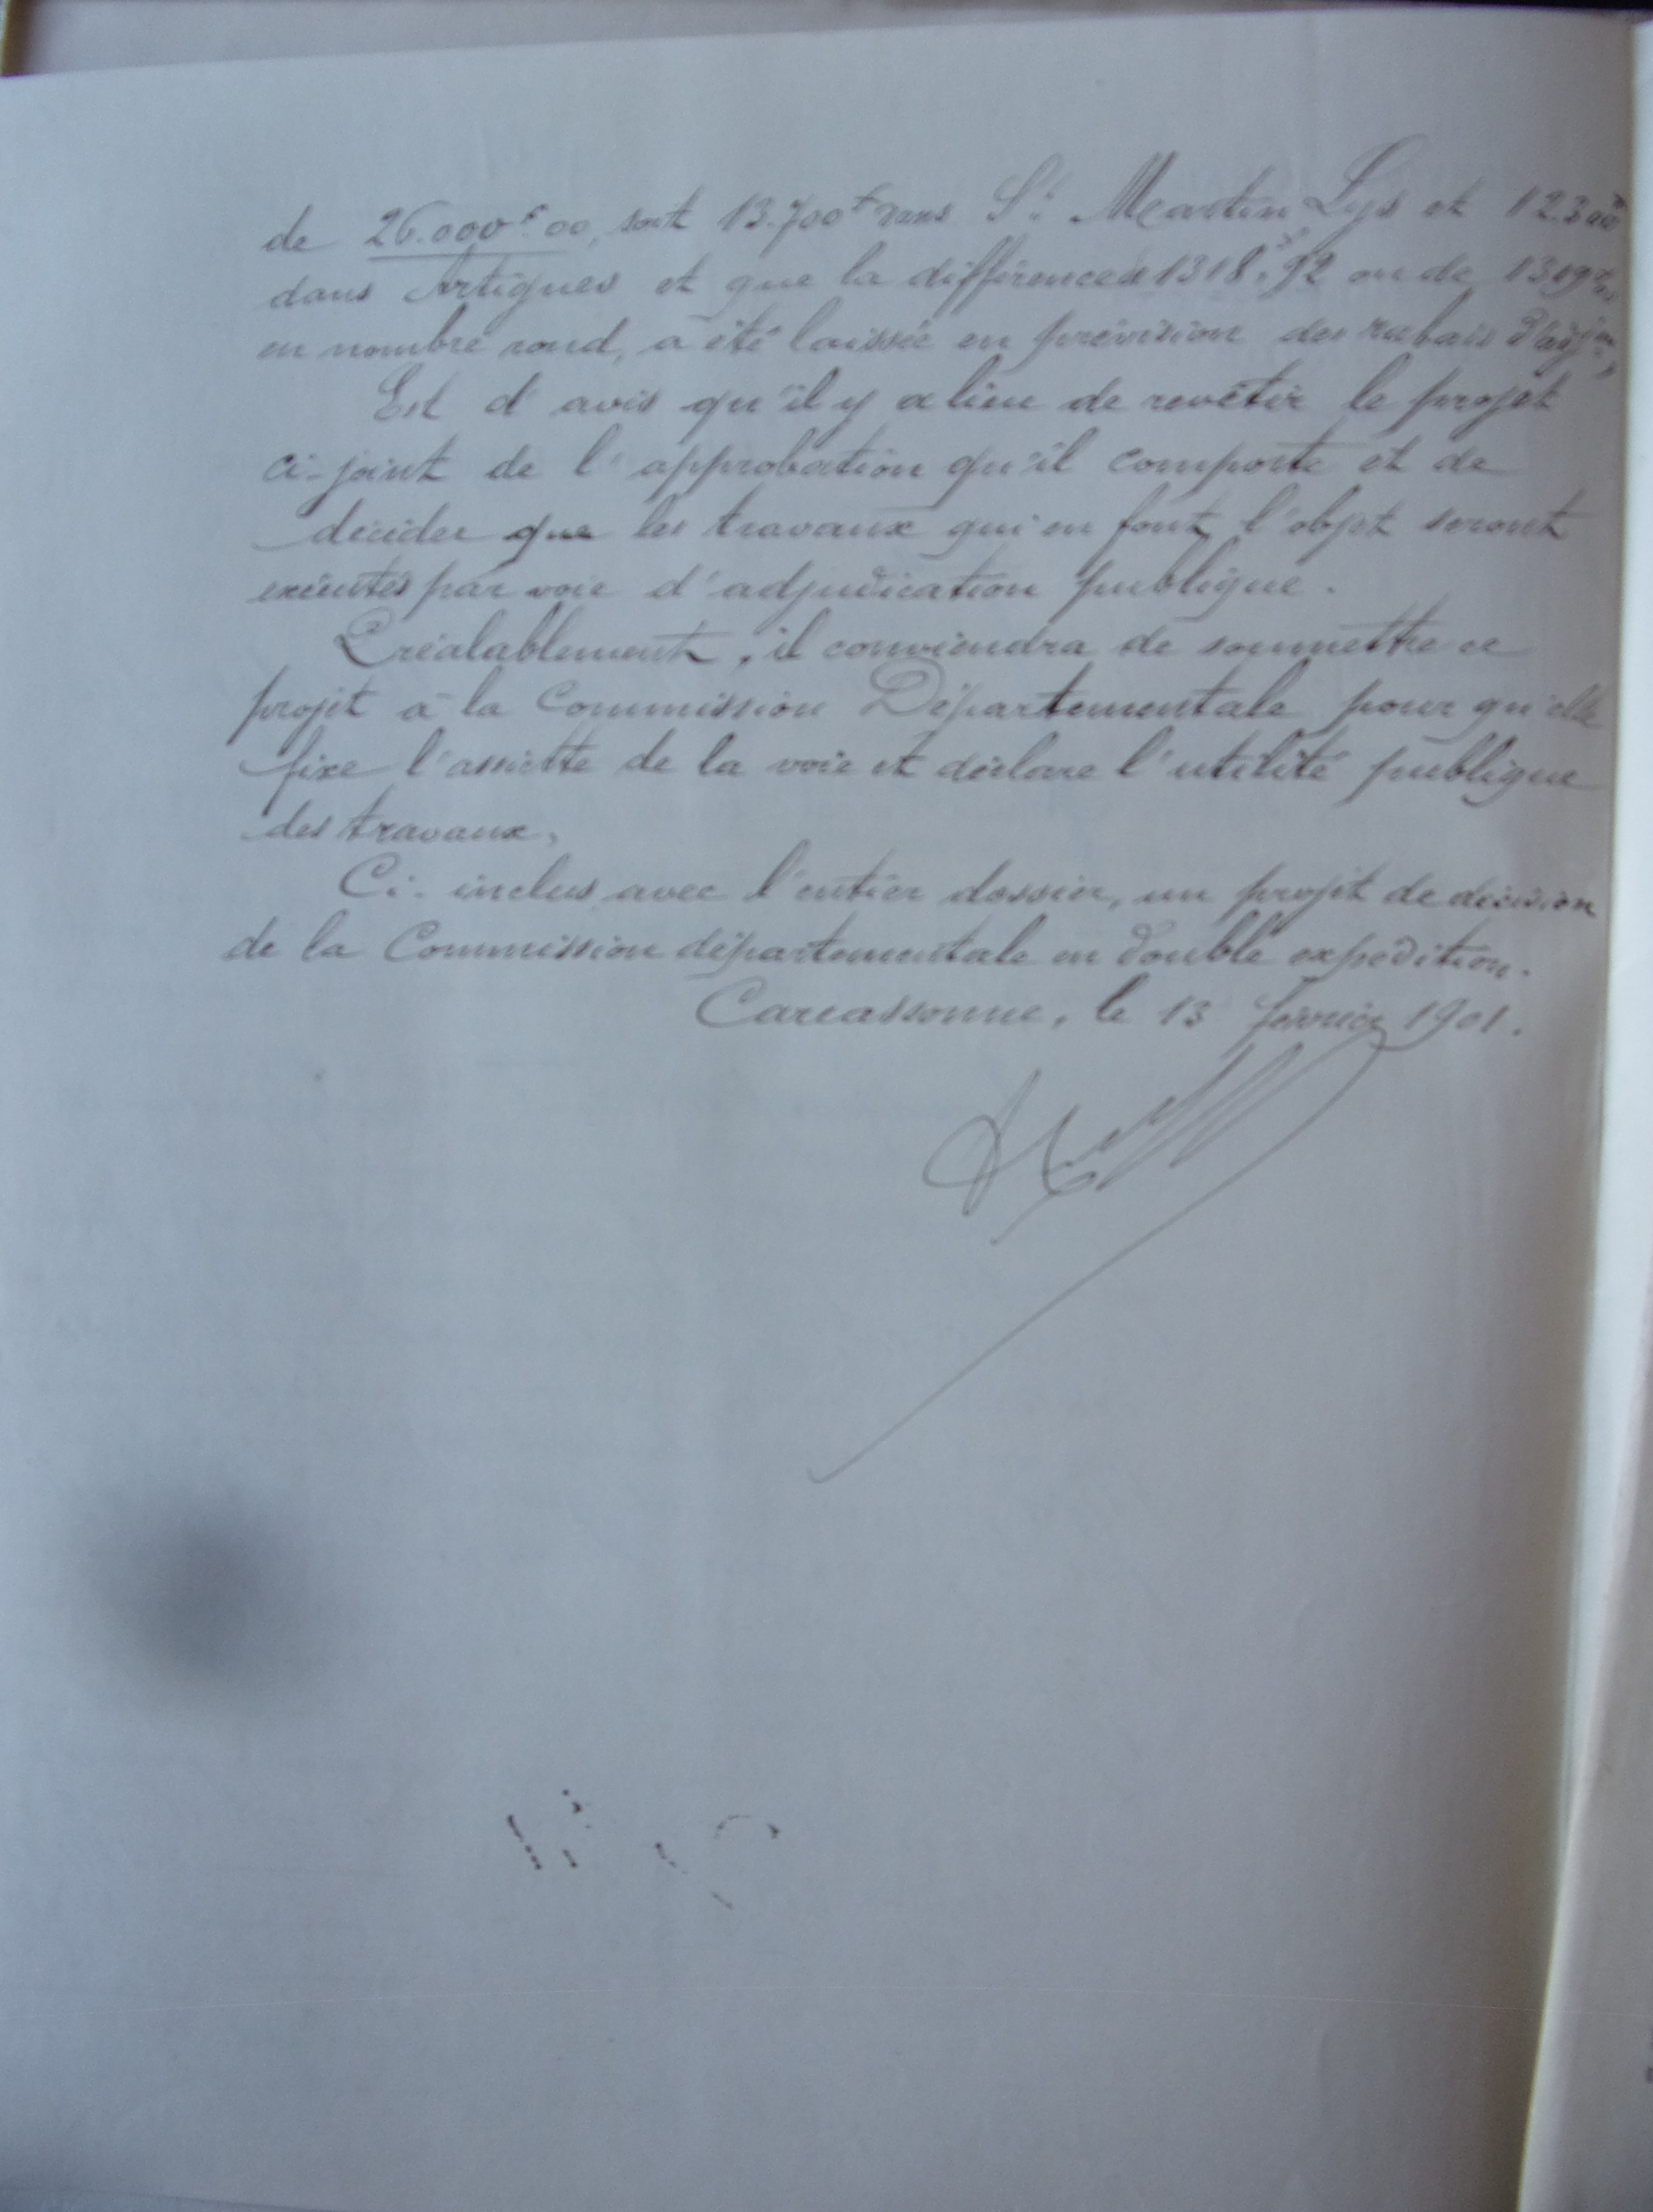 de 26.000f.00, soit 13.700f dans St Martin Lys et 12.300f
dans Artigues et que la différence de 1318f,92 ou de 1319f
en nombre rond, a été laissée en prévision des rabais d'adjon,
Est d'avis qu'il y a lieu de revêtir le projet
ci-joint de l'approbation qu'il comporte et de
décider que les travaux qui en font l'objet seront
exécutés par voie d'adjudication publique.
Préalablement, il conviendra de soumettre ce
projet à la Commission Départementale pour qu'elle
fixe l'assiette de la voie et déclare l'utilité publique
des travaux.
Ci-inclus avec l'entier dossier, un projet de décision
de la Commission départementale en double expédition.
Carcassonne, le 13 février 1901.